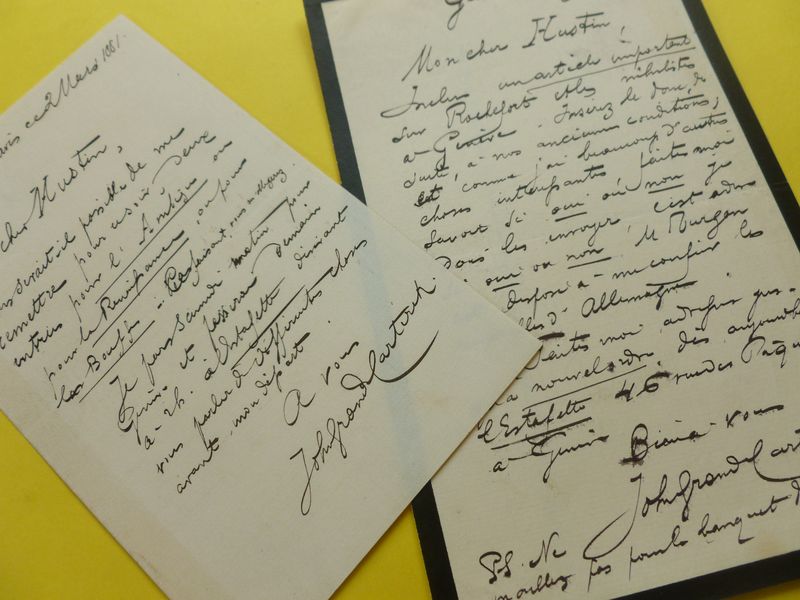 ce 2 Mars 1881.
cher Hustin,
serait-il possible de me
remettre pour ce soir deux
entrées pour l'Ambigu ou
pour la Renaissance, ou pour
les Bouffes.
Je pars Samedi matin pour
Genève et passerai demain
à 2h. à l'Estafette désirant
vous parler de différentes choses
avant mon départ.
A vous
John Grand-Carteret.
Mon cher Hustin,
Inclus un article important
sur Rochefort et les nihilistes
à Genève. Insérez le donc, de
suite, à nos anciennes conditions,
et comme j'ai beaucoup d'autres
choses intéressantes faites moi
savoir si oui ou non je
dois les envoyer, c'est à dire
si oui ou non M
disposé à me confier les
d'Allemagne.
Faites moi adresser jusqu'
à nouvel ordre, dès aujourd'hui
l'Estafette 46 rue des Pâquis
à Genève
Bien à vous
John Grand-Cart
P.S. Ne
m'oubliez pas pour le banquet